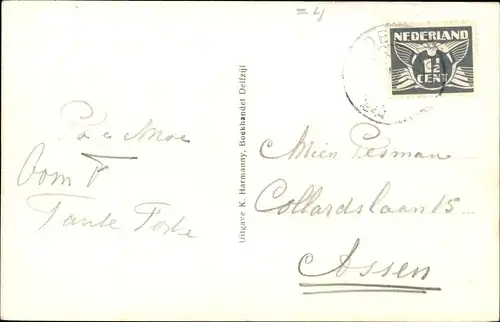 =4
NEDERLAND
1½
CENT
Pa & Moe
Oom F
Tante
Uitgave K. Harmanny, Boekhandel Delfzijl
Mien Pesman
Collardslaan 15
Assen